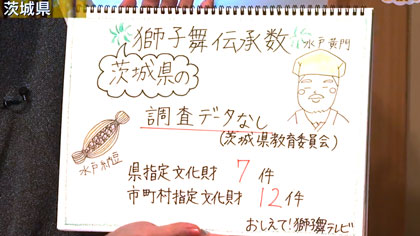 茨城県
獅子舞伝承数
水戸黄門
茨城県の
調査データなし
(茨城県教育委員会)
水戸納豆
県指定文化財 7件
市町村指定文化財 12件
おしえて!獅子舞テレビ